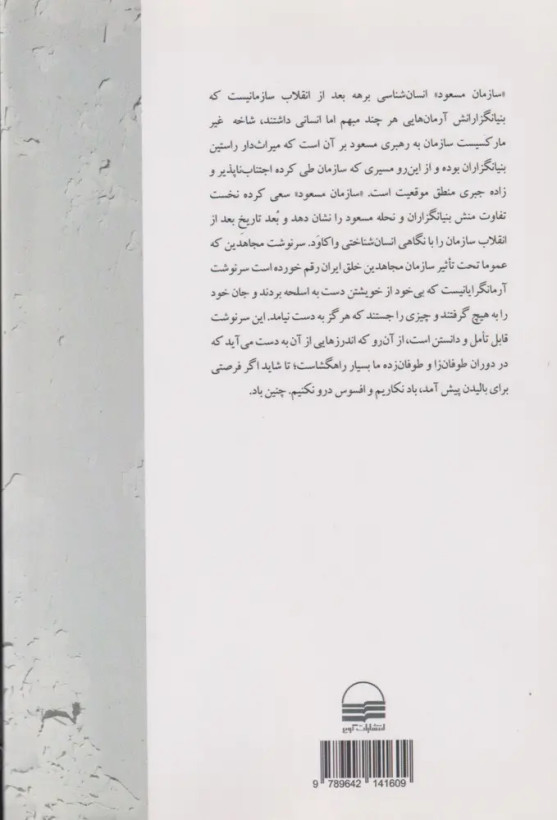 «سازمان مسعود» انسان‌شناسی برهه بعد از انقلاب سازمانیست که
بنیانگزارانش آرمان‌هایی هر چند مبهم اما انسانی داشتند، شاخه غیر
مارکسیست سازمان به رهبری مسعود بر آن است که میراث‌دار راستین
بنیانگزاران بوده و از این‌رو مسیری که سازمان طی کرده اجتناب‌ناپذیر و
زاده جبری منطق موقعیت است. «سازمان مسعود» سعی کرده نخست
تفاوت منش بنیانگزاران و نحله مسعود را نشان دهد و بُعد تاریخ بعد از
انقلاب سازمان را با نگاهی انسان‌شناختی واکاوَد. سرنوشت مجاهدین که
عموما تحت تأثیر سازمان مجاهدین خلق ایران رقم خورده است سرنوشت
آرمانگرایانیست که بی‌خود از خویشتن دست به اسلحه بردند و جان خود
را به هیچ گرفتند و چیزی را جستند که هرگز به دست نیامد. این سرنوشت
قابل تأمل و دانستن است، از آن‌رو که اندرزهایی از آن به دست می‌آید که
در دوران طوفان‌زا و طوفان‌زده ما بسیار راهگشاست؛ تا شاید اگر فرصتی
برای بالیدن پیش آمد، باد نکاریم و افسوس درو نکنیم. چنین باد.
انتشارات کویر
9 789642 141609